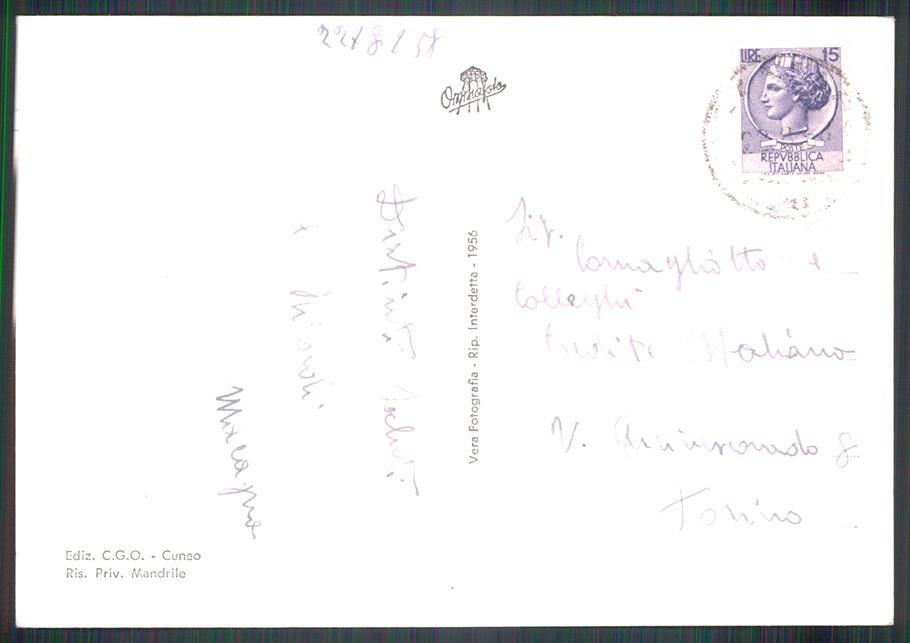 LIRE 15
POSTE
REPVBBLICA
ITALIANA
Vera Fotografia - Rip. Interdetta - 1956
Distinti saluti
e
Sig.
Cornagliotto e
Colleghi
Credito Italiano
V.
8
Torino
Ediz. C.G.O. - Cuneo
Ris. Priv. Mandrile